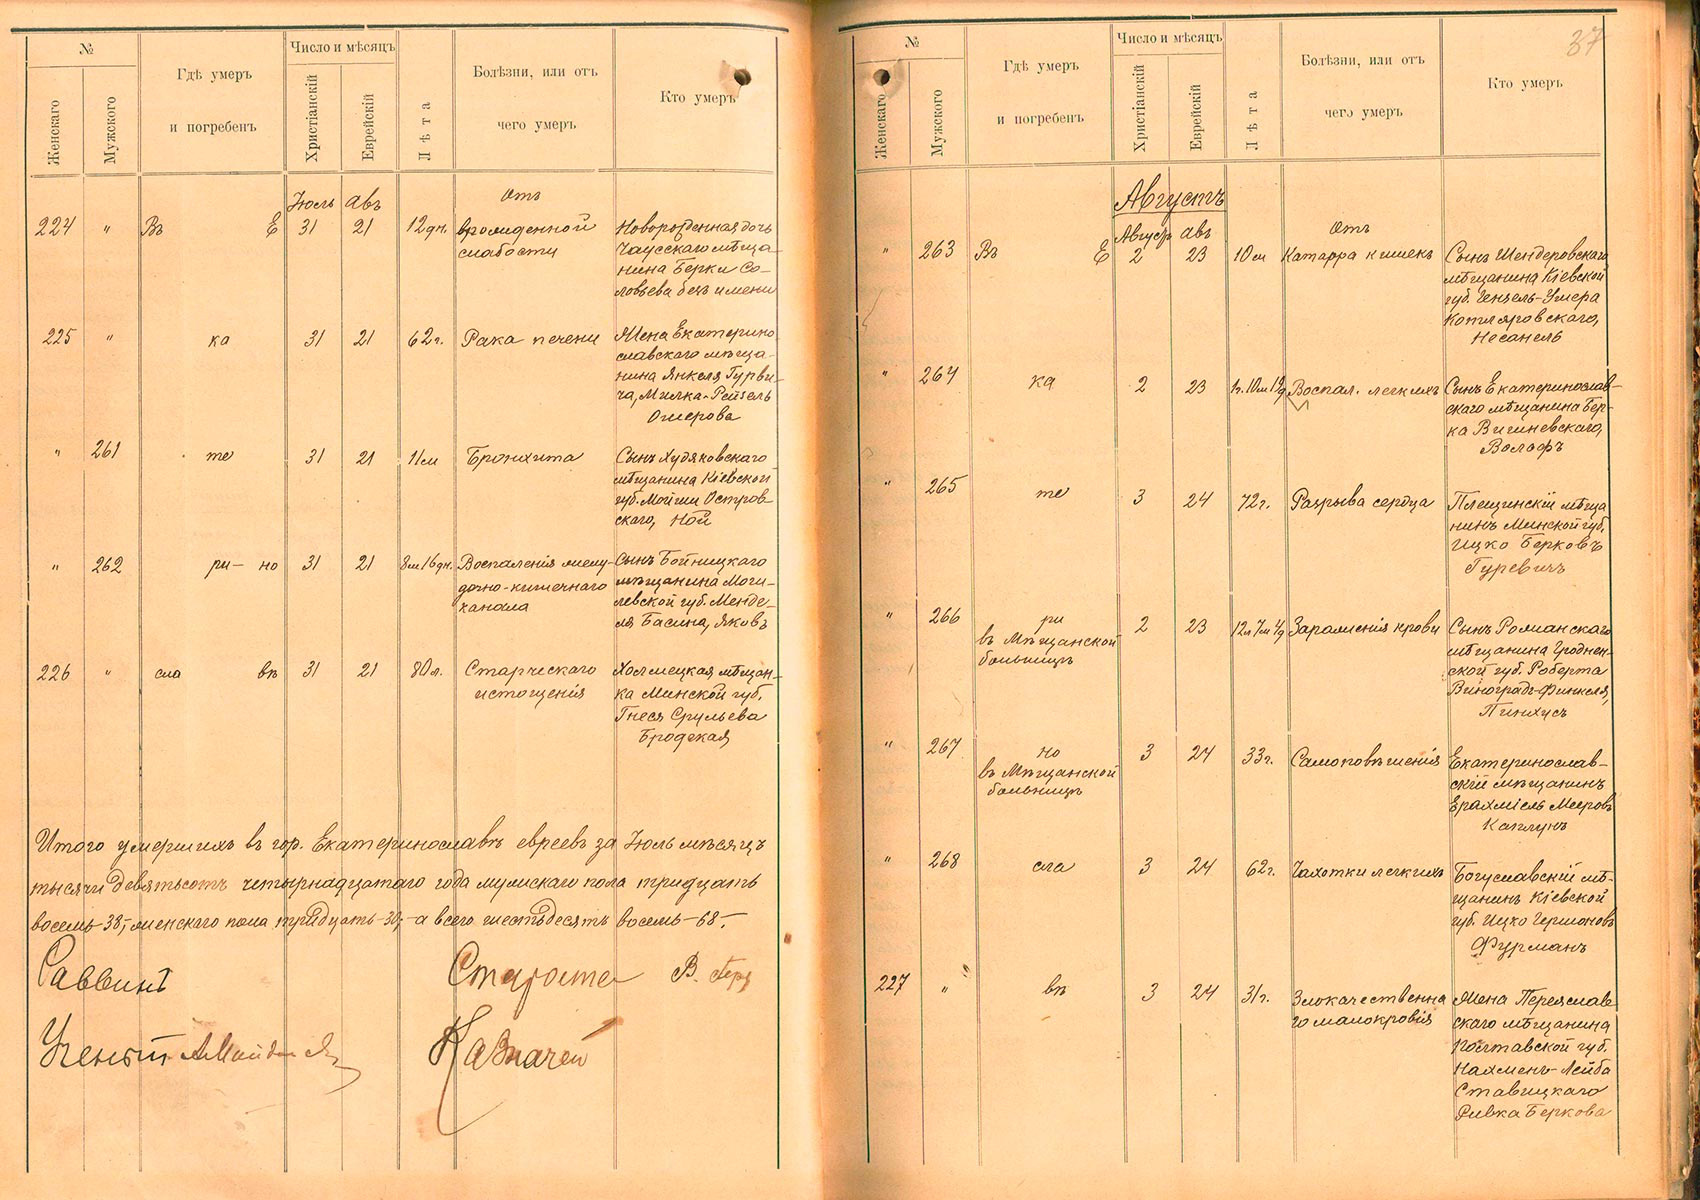 №
Число и мѣсяцъ
Женскаго
Мужскаго
Гдѣ умеръ
и погребенъ
Христіанскій
Еврейскій
Лѣта
Болѣзни, или отъ
чего умеръ
Кто умеръ
Іюль авъ
Отъ
224 " Въ Е 31 21 12 дн. врожденной Новорожденная дочь
слабости Чаусскаго мѣща-
нина Берки Со-
ловьева безъ имени
225 " ка 31 21 62 г. Рака печени Жена Екатерино-
славскаго мѣща-
нина Янкеля Гурви-
ча, Милка-Рейзель
Ошерова
" 261 те 31 21 11 м Бронхита Сынъ Худяковскаго
мѣщанина Кіевской
губ. Мойши Остров-
скаго, Ной
" 262 ри- но 31 21 8 м 16 дн. Воспаленія желу- Сынъ Бойницкаго
дочно-кишечнаго мѣщанина Моги-
канала левской губ. Менде-
ля Басина, Яковъ
226 " сла вѣ 31 21 80 л. Старческаго Холмецкая мѣщан-
истощенія ка Минской губ.
Гнеся Срульева
Бродская
Итого умершихъ въ гор. Екатеринославѣ евреевъ за Іюль мѣсяцъ
тысячи девятьсотъ четырнадцатаго года мужскаго пола тридцать
восемь-38,-женскаго пола тридцать-30,-а всего шестьдесятъ восемь-68.-
Раввинъ Староста В.
Ученый Казначей
37
№
Число и мѣсяцъ
Женскаго
Мужскаго
Гдѣ умеръ
и погребенъ
Христіанскій
Еврейскій
Лѣта
Болѣзни, или отъ
чего умеръ
Кто умеръ
Августъ
Августъ авъ
Отъ
" 263 Въ Е 2 23 10 м Катарра кишекъ Сынъ Шендеровскаго
мѣщанина Кіевской
губ. Умера
Котляровскаго,
Несанель
" 264 ка 2 23 1 г. 10 м 19 д Воспал. легкихъ Сынъ Екатеринослав-
скаго мѣщанина Бер-
ка Вишневскаго,
Волофъ
" 265 те 3 24 72 г. Разрыва сердца Плещинскій мѣща
нинъ Минской губ.
Ицко Берковъ
Гуревичъ
" 266 ри 2 23 12 л 7 м 4 д Зараженія крови Сынъ Рожанскаго
въ Мѣщанской мѣщанина Гроднен-
больницѣ ской губ. Роберта
Виноградъ-Финкеля,
Пинхусъ
" 267 но 3 24 33 г. Самоповѣшенія Екатеринослав-
въ Мѣщанской скій мѣщанинъ
больницѣ Ерахміель Мееровъ
Каплунъ
" 268 сла 3 24 62 г. Чахотки легкихъ Богуславскій мѣ-
щанинъ Кіевской
губ. Ицко Гершоновъ
Фурманъ
227 " вѣ 3 24 31 г. Злокачественна Жена Переяслав
го малокровія скаго мѣщанина
Полтавской губ.
Нахмень-Лейба
Ставицкаго
Ривка Беркова